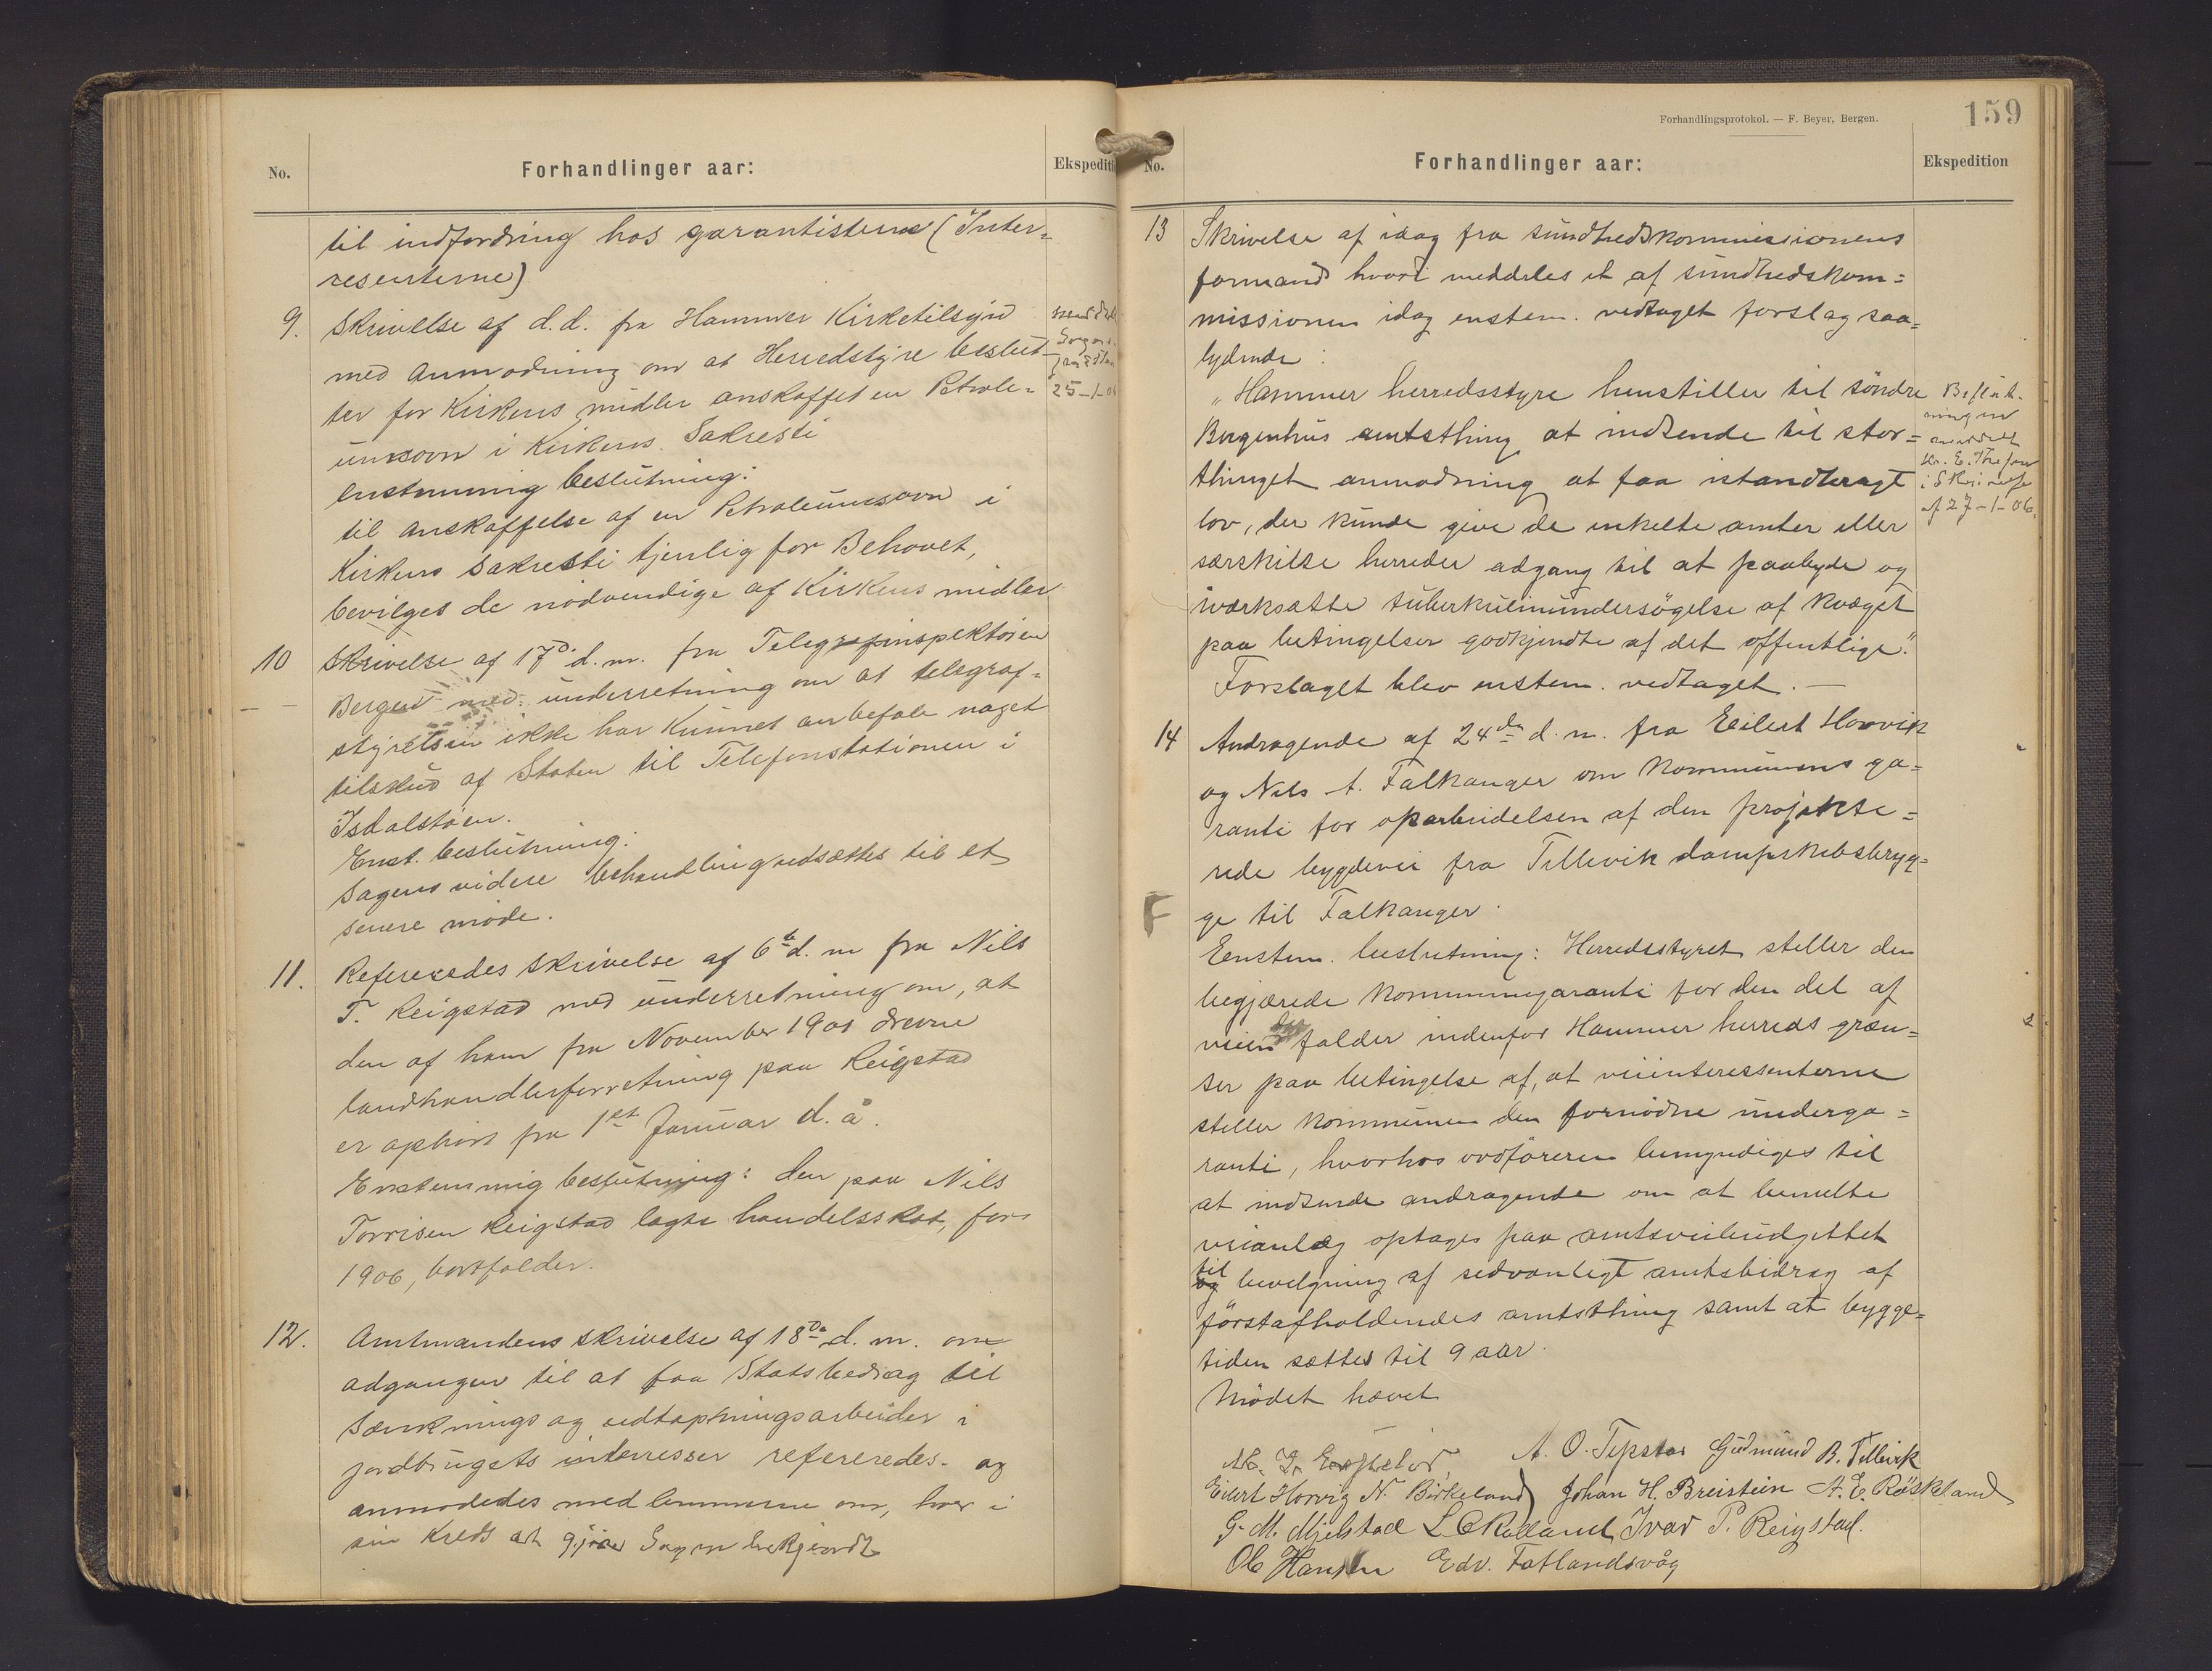 No.
Forhandlinger aar:
Ekspediti
til indfordring hos garantisterne (Inter=
resenterne)
9. Skrivelse af d.d. fra Hammer Kirketilsyn
med Anmodning om at Herredstyre beslut-
ter for Kirkens midler anskaffet en Petrole=
umsovn i Kirkens Sakresti
Enstemmig beslutning:
til anskaffelse af en Petroleumsovn i
Kirkens Sakresti tjenlig for Behovet,
bevilges de nödvendige af Kirkens midler
25-1-06
10 Skrivelse af 17de d.m. fra Telegrafinspektören
Bergen med underretning om at telegraf=
styrelsen ikke har kunnet anbefale noget
tilskud af Staten til Telefonstationen i
Isdalstöen.
Enst. beslutning:
Sagens videre behandling udsættes til et
senere möde.
11. Refereredes skrivelse af 6te d. m fra Nils
T. Reigstad med underretning om, at
den af ham fra November 1901 drevne
landhandlerforretning paa Reigstad
er ophört fra 1st Januar d. å.
Enstemmig beslutning: den paa Nils
Torrisen Reigstad lagte handelsskat, for
1906, bortfalder.
12. Amtmandens skrivelse af 18de d. m. om
adgangen til at faa Statsbedrag til
Sænknings og udtapningsarbeider i
jordbrugets interresser refereredes. og
anmodedes medlemmerne om, hver i
sin Kreds at gjöre Sagen bekjendt
Forhandlingsprotokol. — F. Beyer, Bergen.
159
No.
Forhandlinger aar:
Ekspedition
13 Skrivelse af idag fra sundhedskommissionens
formand hvori meddeles et af sundhedskom=
missionen idag enstem. vedtaget forslag saa=
lydende:
„Hammer herredsstyre henstiller til söndre
Bergenhus amtsthing at indsende til stor=
thinget anmodning at faa istandbragt
lov, der kunde give de enkelte amter eller
særskilte herreder adgang til at paabyde og
iværksætte tuberkulinundersögelse af kvæget
paa betingelser godkjendte af det offentlige."
Forslaget blev enstem. vedtaget. —
Beslut-
ningen
meddelt
i Skrivelse
af 27-1-06.
14 Andragende af 24de d. m. fra Eilert Horvik
og Nils A. Falkanger om Kommunens ga=
ranti for oparbeidelsen af den projekte=
rede bygdevei fra Tellevik dampskibsbryg=
ge til Falkanger.
F
Eenstem. beslutning: Herredsstyret steller den
begjærede kommunegaranti for den del af
veien der falder indenfor Hammer herreds græn=
ser paa betingelse af, at veiinteressenterne
steller kommunen den fornödne underga=
ranti, hvorhos ordföreren bemyndiges til
at indsende andragende om at bemelte
veianlæg optages paa amtsveibudgettet
til
og bevilgning af sedvanligt amtsbidrag af
förstafholdendes amtsthing samt at bygge=
tiden sættes til 9 aar.
Mödet hævet
A. O. Tepstad Gudmund B. Tellevik
Eilert Horvig N. Birkeland Johan H. Breistein A. E. Röskland
G. M. Mjelstad L C Rolland Ivar P. Reigstad.
Ole Hansen Edv. Fatlandsvåg